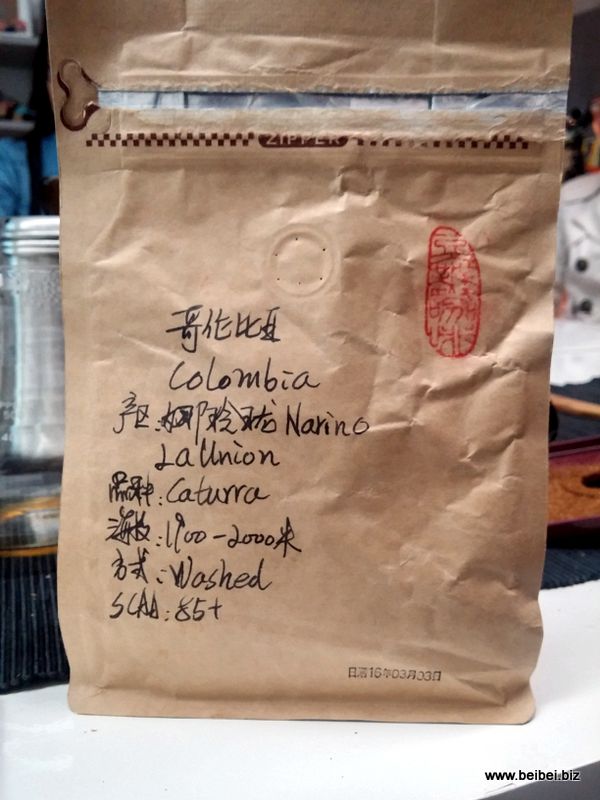 ZIPPER
哥伦比亚
Colombia
产区:娜玲珑 Narino
La Union
品种:Caturra
海拔:1900-2000米
方式:Washed
SCAA:85+
16年03月03日
www.beibei.biz